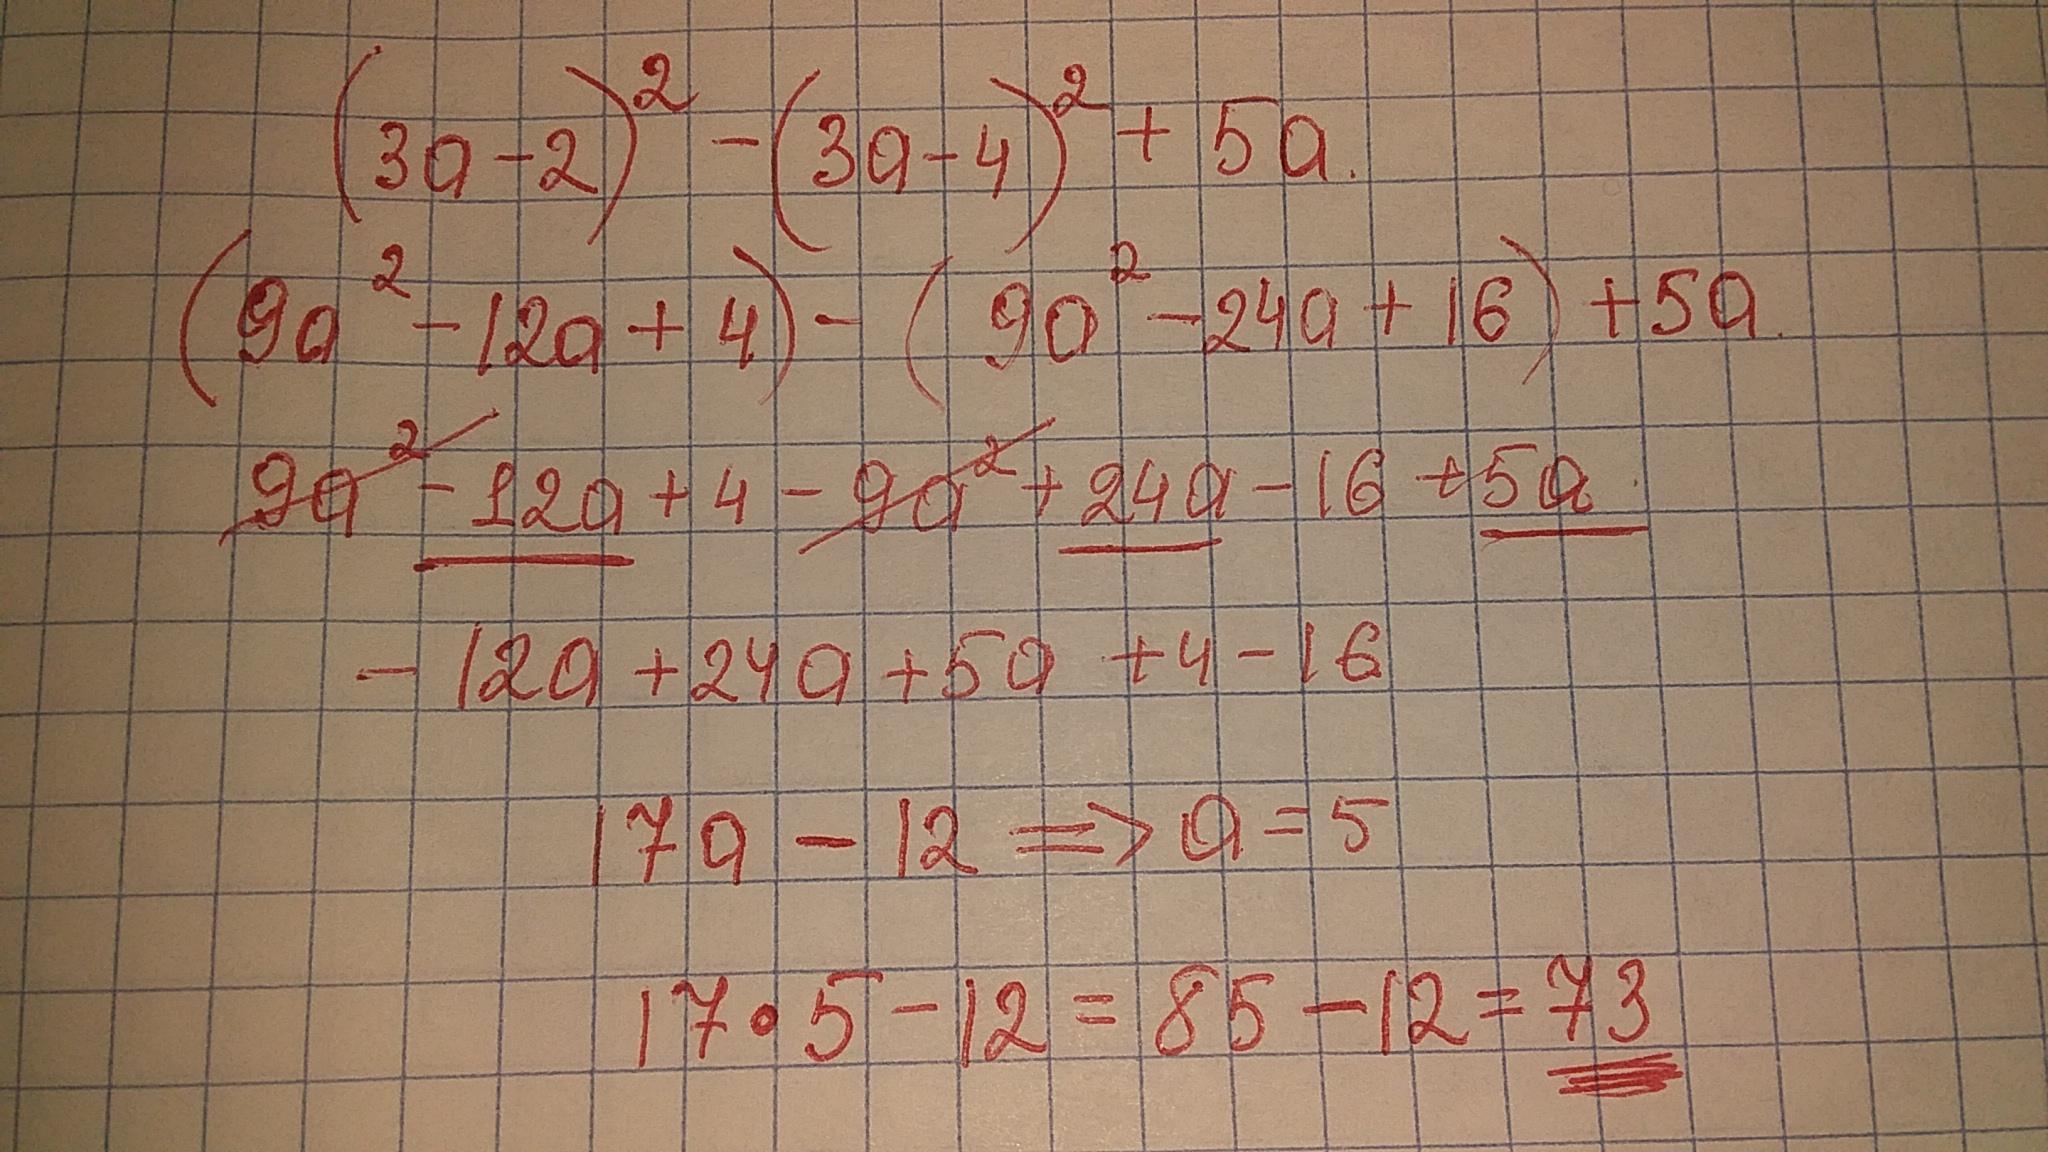 (3a-2)² - (3a-4)² + 5a.
(9a² - 12a + 4) - (9a² - 24a + 16) + 5a.
9a² - 12a + 4 - 9a² + 24a - 16 + 5a.
- 12a + 24a + 5a + 4 - 16
17a - 12 => a = 5
17•5 - 12 = 85 - 12 = 73